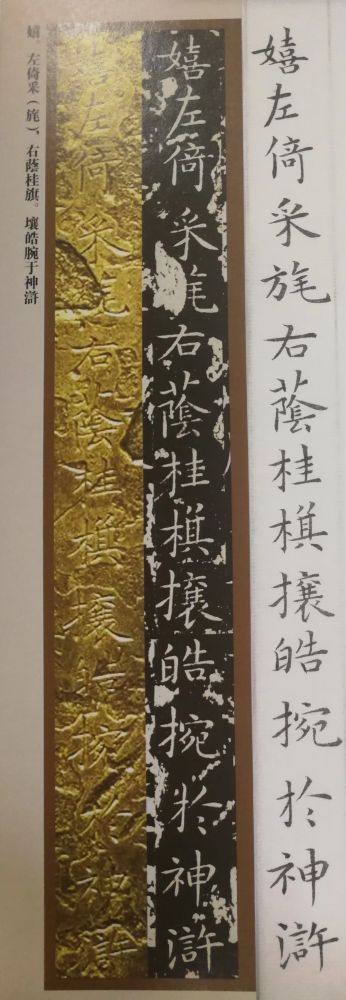 嬉左倚采旄右蔭桂棋攘皓捥於神滸
嬉左倚采旄右蔭桂棋攘皓捥於神滸
嬉左倚采旄右蔭桂棋攘皓捥於神滸
嬉 左倚采（旄），右蔭桂旗。壤皓腕于神滸